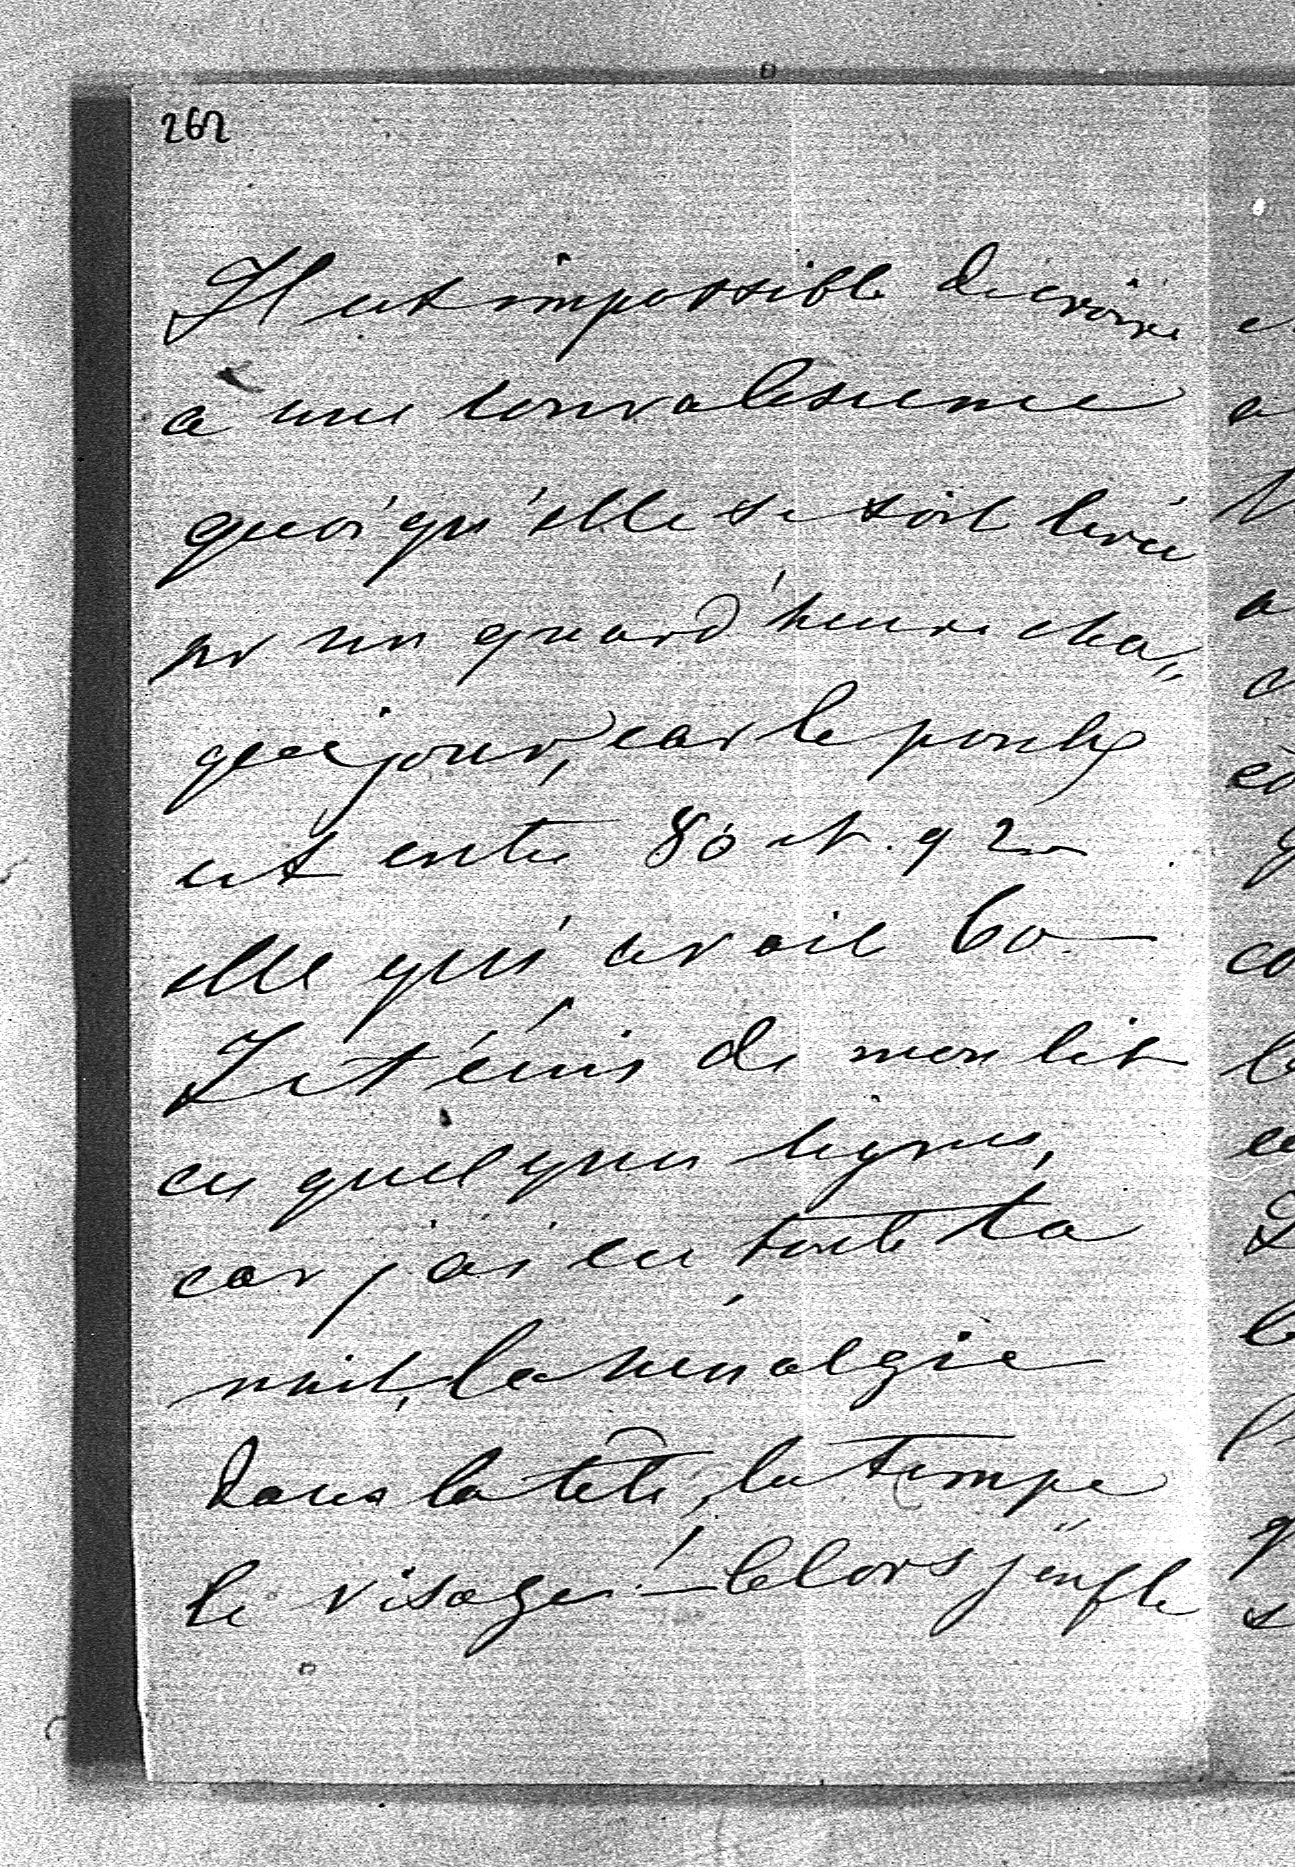 262
Il est impossible de croire
à une convalescence
quoiqu'elle se soit levée
pr un quard d'heure cha„
que jour, car le pouls
est entre 80 et 92
elle qui avait 60 —
Je t'écris de mon lit
ces quelques lignes,
car j'ai eu toute la
nuit, la névralgie
dans la tête, la tempe
le visage! —